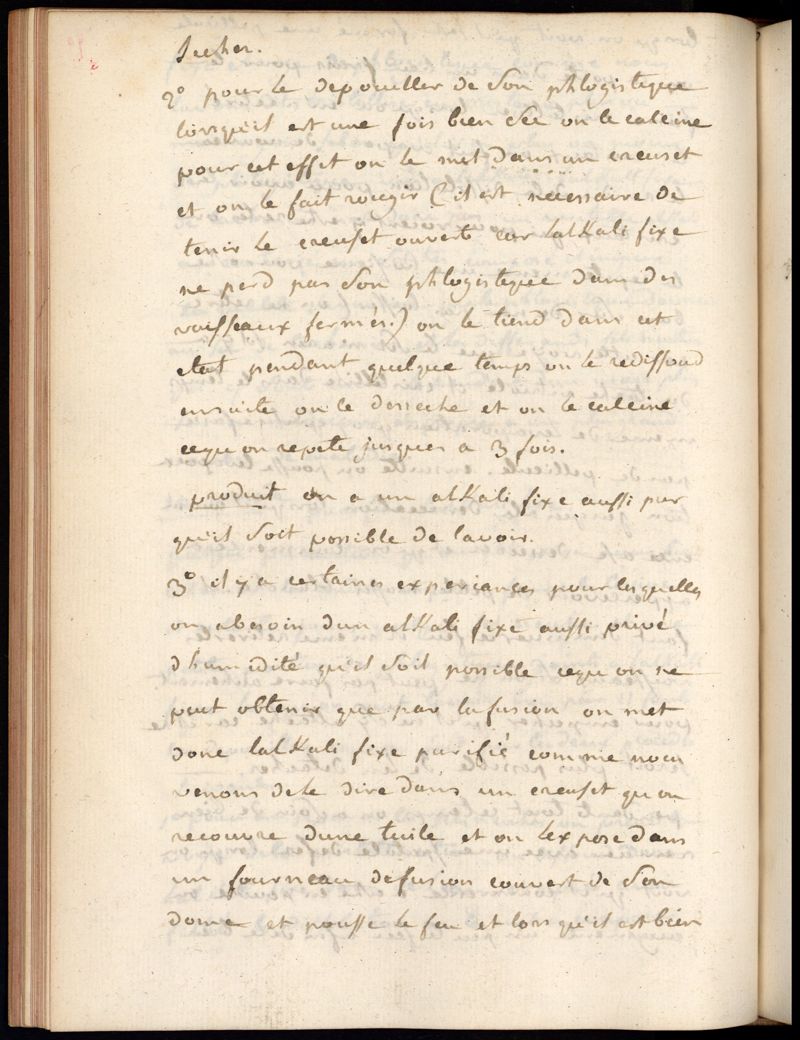 secher.
2° pour le depouiller de son phlogistique
lorsqu'il est une fois bien sec on le calcine
pour cet effet on le met dans un creuset
et on le fait rougir (il est necessaire de
tenir le creuset ouvert car lalkali fixe
ne perd pas son phlogistique dans des
vaisseaux fermés.) on le tient dans cet
etat pendant quelque temps on le redissoud
ensuite on le desseche et on le calcine
cequ on repete jusques a 3 fois.
produit on a un alkali fixe aussi pur
qu'il soit possible de lavoir.
3° il y a certaines experiances pour lesquelles
on abesoin dun alkali fixe aussi privé
dhumidité qu'il soit possible cequ on ne
peut obtenir que par la fusion on met
donc lalkali fixe purifié comme nous
venons dele dire dans un creuset qu on
recouvre dune tuile et on lexpose dans
un fourneau defusion couvert de son
dome et pousse le feu et lors qu'il est bien